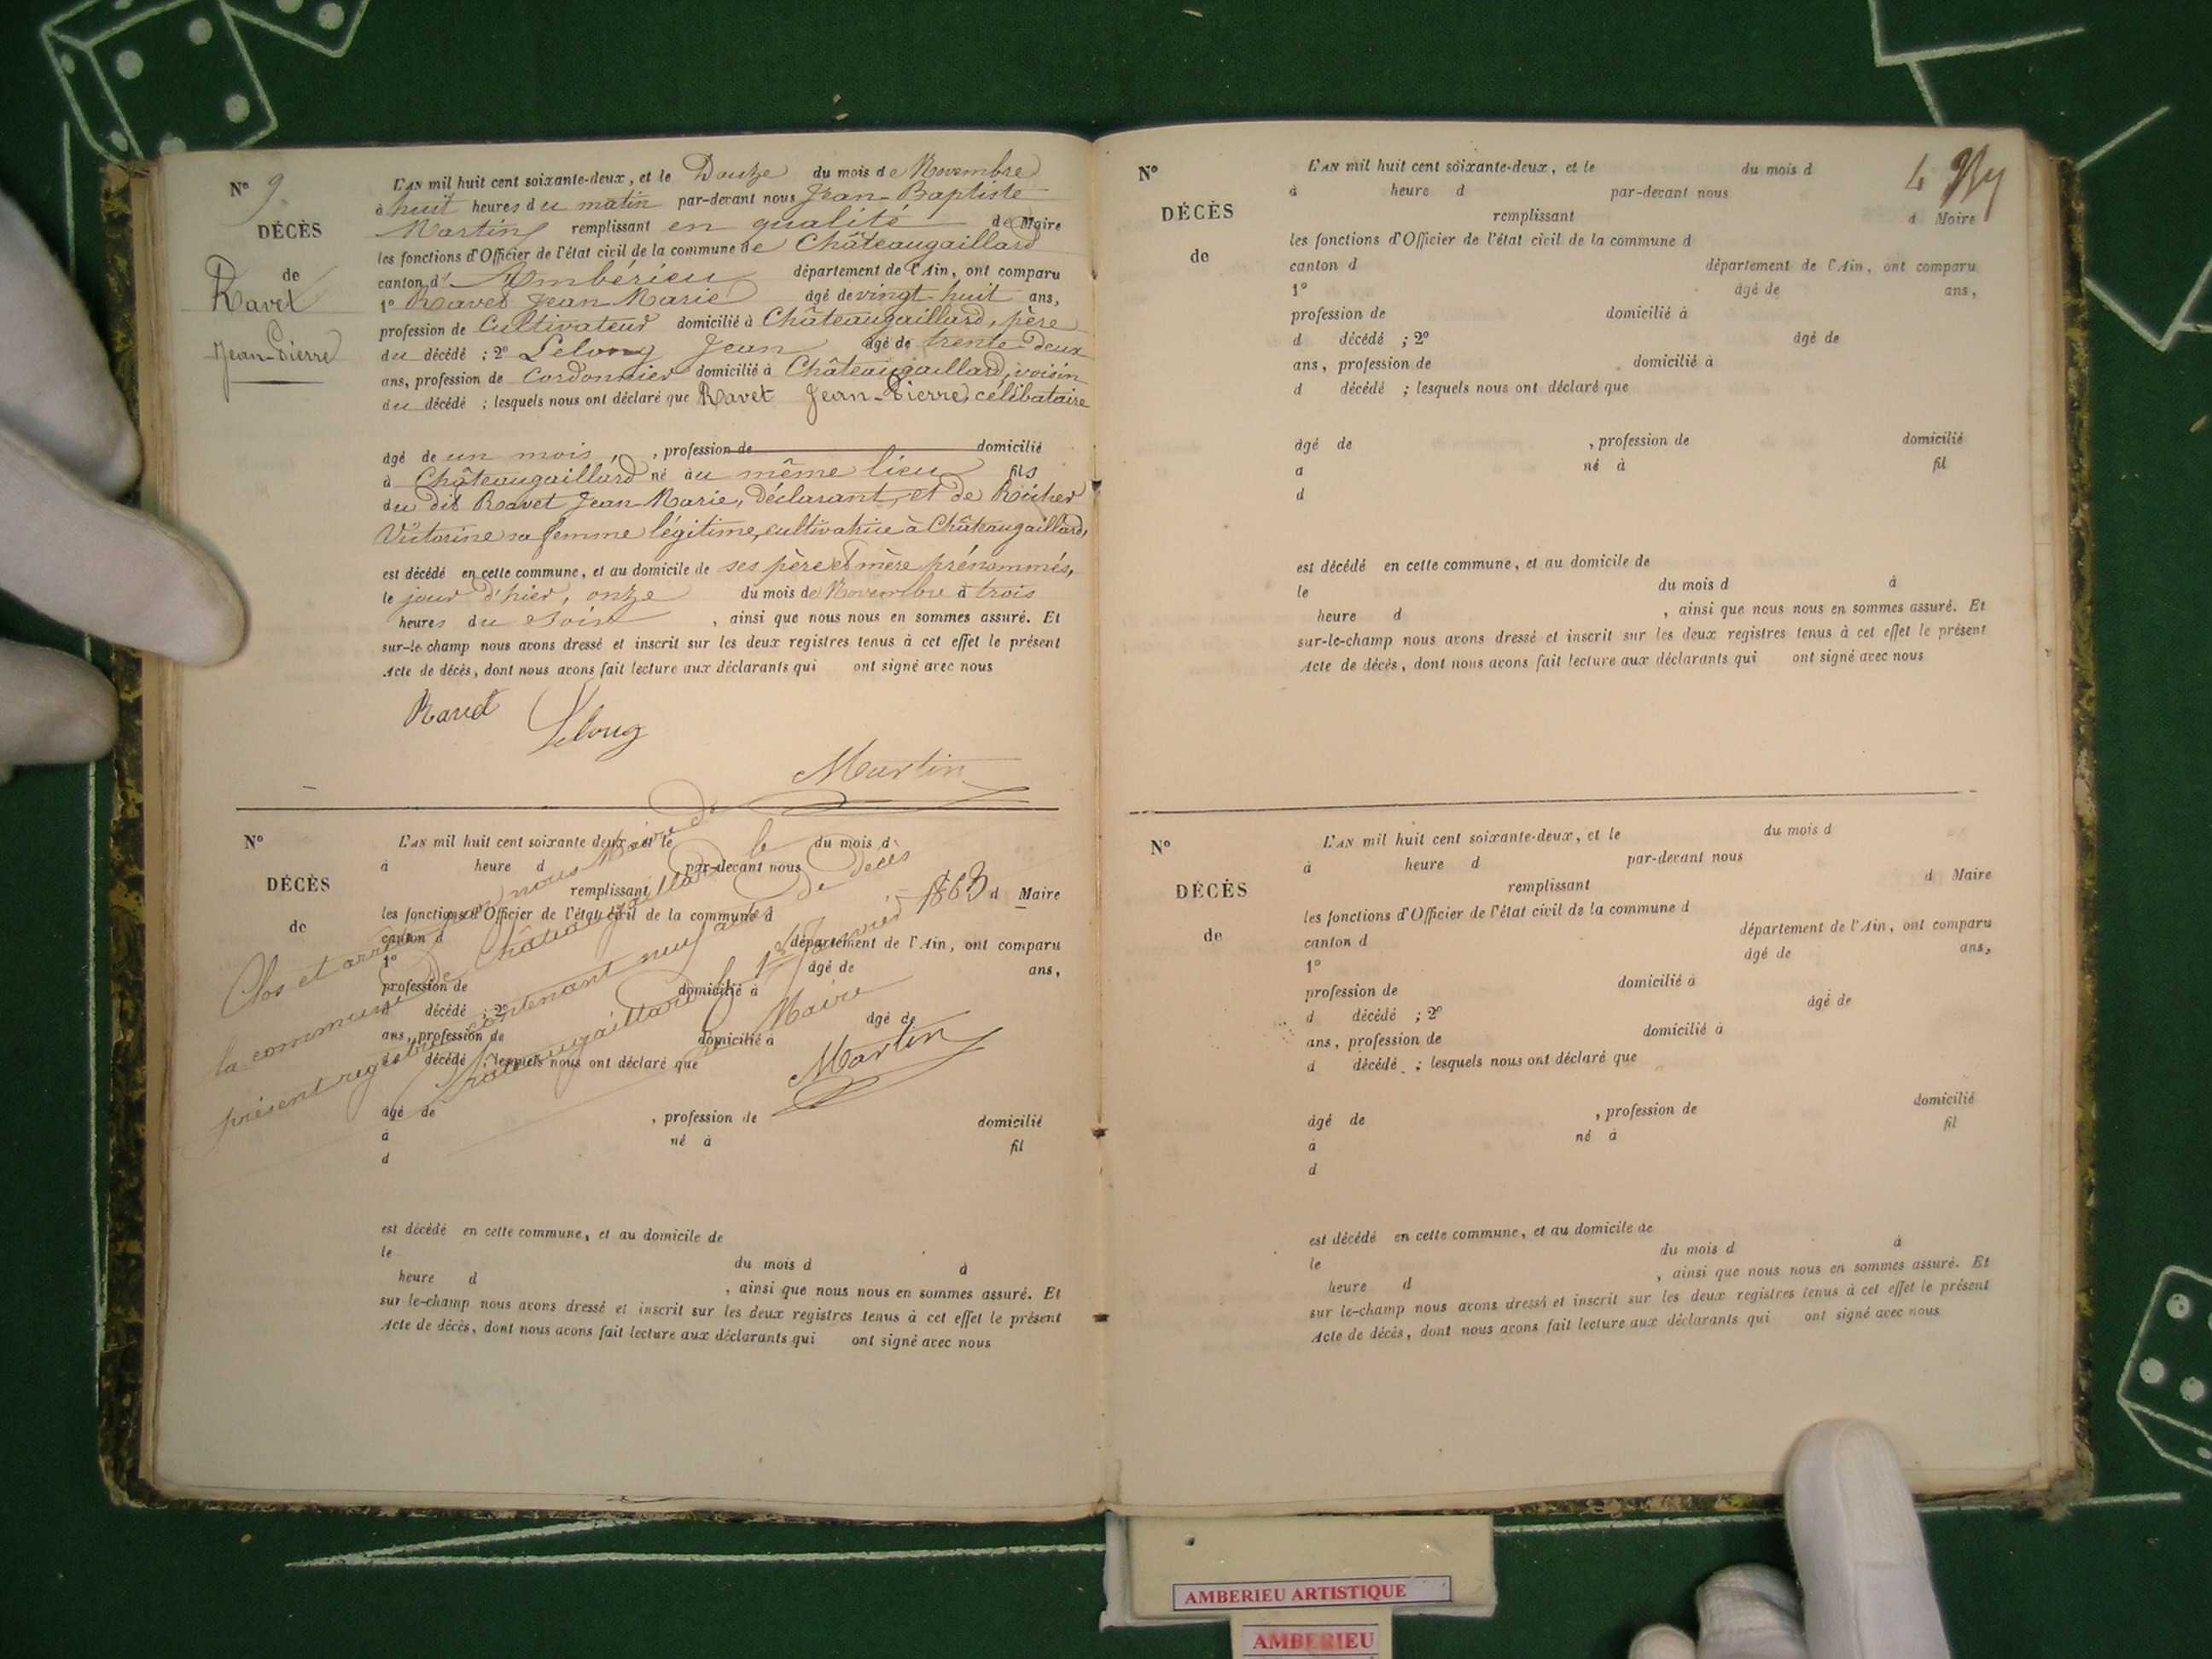 N° 9
DÉCÈS
de
Ravet
Jean-Pierre
L'AN mil huit cent soixante-deux, et le Douze du mois de Novembre
à huit heures du matin par-devant nous Jean Baptiste
Martin remplissant en qualité de Maire
les fonctions d'Officier de l'état civil de la commune de Châteaugaillard
canton d' Ambérieu département de l'Ain, ont comparu
1° Ravet Jean Marie âgé de vingt huit ans,
profession de Cultivateur domicilié à Châteaugaillard, père
du décédé ; 2° Lelong Jean âgé de trente deux
ans, profession de Cordonnier domicilié à Châteaugaillard, voisin
du décédé ; lesquels nous ont déclaré que Ravet Jean-Pierre, célibataire
âgé de un mois, , profession de domicilié
à Châteaugaillard né au même lieu fils
du dit Ravet Jean Marie, déclarant, et de
Victorine sa femme légitime, cultivatrice à Châteaugaillard,
est décédé en cette commune, et au domicile de ses père et mère prénommés,
le jour d'hier, onze du mois de Novembre à trois
heures du soir , ainsi que nous nous en sommes assuré. Et
sur-le-champ nous avons dressé et inscrit sur les deux registres tenus à cet effet le présent
Acte de décès, dont nous avons fait lecture aux déclarants qui ont signé avec nous
Ravet
Lelong
Martin
N°
DÉCÈS
de
L'AN mil huit cent soixante deux, et le du mois d
à heure d par-devant nous
remplissant d Maire
les fonctions d'Officier de l'état civil de la commune d
canton d département de l'Ain, ont comparu
1° âgé de ans,
profession de domicilié à
d décédé ; 2° âgé de
ans, profession de domicilié à
d décédé ; lesquels nous ont déclaré que
Clos et arrêté par nous Maire de
la commune de Châteaugaillard le
présent registre contenant neuf actes de décès
Châteaugaillard le 1er Janvier 1863
Le Maire
Martin
âgé de , profession de domicilié
à né à fil
d
est décédé en cette commune, et au domicile de
le du mois d à
heure d , ainsi que nous nous en sommes assuré. Et
sur le-champ nous avons dressé et inscrit sur les deux registres tenus à cet effet le présent
Acte de décès, dont nous avons fait lecture aux déclarants qui ont signé avec nous
N°
DÉCÈS
de
L'AN mil huit cent soixante-deux, et le du mois d
à heure d par-devant nous
remplissant d Maire
les fonctions d'Officier de l'état civil de la commune d
canton d département de l'Ain, ont comparu
1° âgé de ans,
profession de domicilié à
d décédé ; 2° âgé de
ans, profession de domicilié à
d décédé ; lesquels nous ont déclaré que
âgé de , profession de domicilié
à né à fil
d
est décédé en cette commune, et au domicile de
le du mois d à
heure d , ainsi que nous nous en sommes assuré. Et
sur-le-champ nous avons dressé et inscrit sur les deux registres tenus à cet effet le présent
Acte de décès, dont nous avons fait lecture aux déclarants qui ont signé avec nous
N°
DÉCÈS
de
L'AN mil huit cent soixante-deux, et le du mois d
à heure d par-devant nous
remplissant d Maire
les fonctions d'Officier de l'état civil de la commune d
canton d département de l'Ain, ont comparu
1° âgé de ans,
profession de domicilié à
d décédé ; 2° âgé de
ans, profession de domicilié à
d décédé ; lesquels nous ont déclaré que
âgé de , profession de domicilié
à né à fil
d
est décédé en cette commune, et au domicile de
le du mois d à
heure d , ainsi que nous nous en sommes assuré. Et
sur le-champ nous avons dressé et inscrit sur les deux registres tenus à cet effet le présent
Acte de décès, dont nous avons fait lecture aux déclarants qui ont signé avec nous
AMBERIEU ARTISTIQUE
AMBERIEU